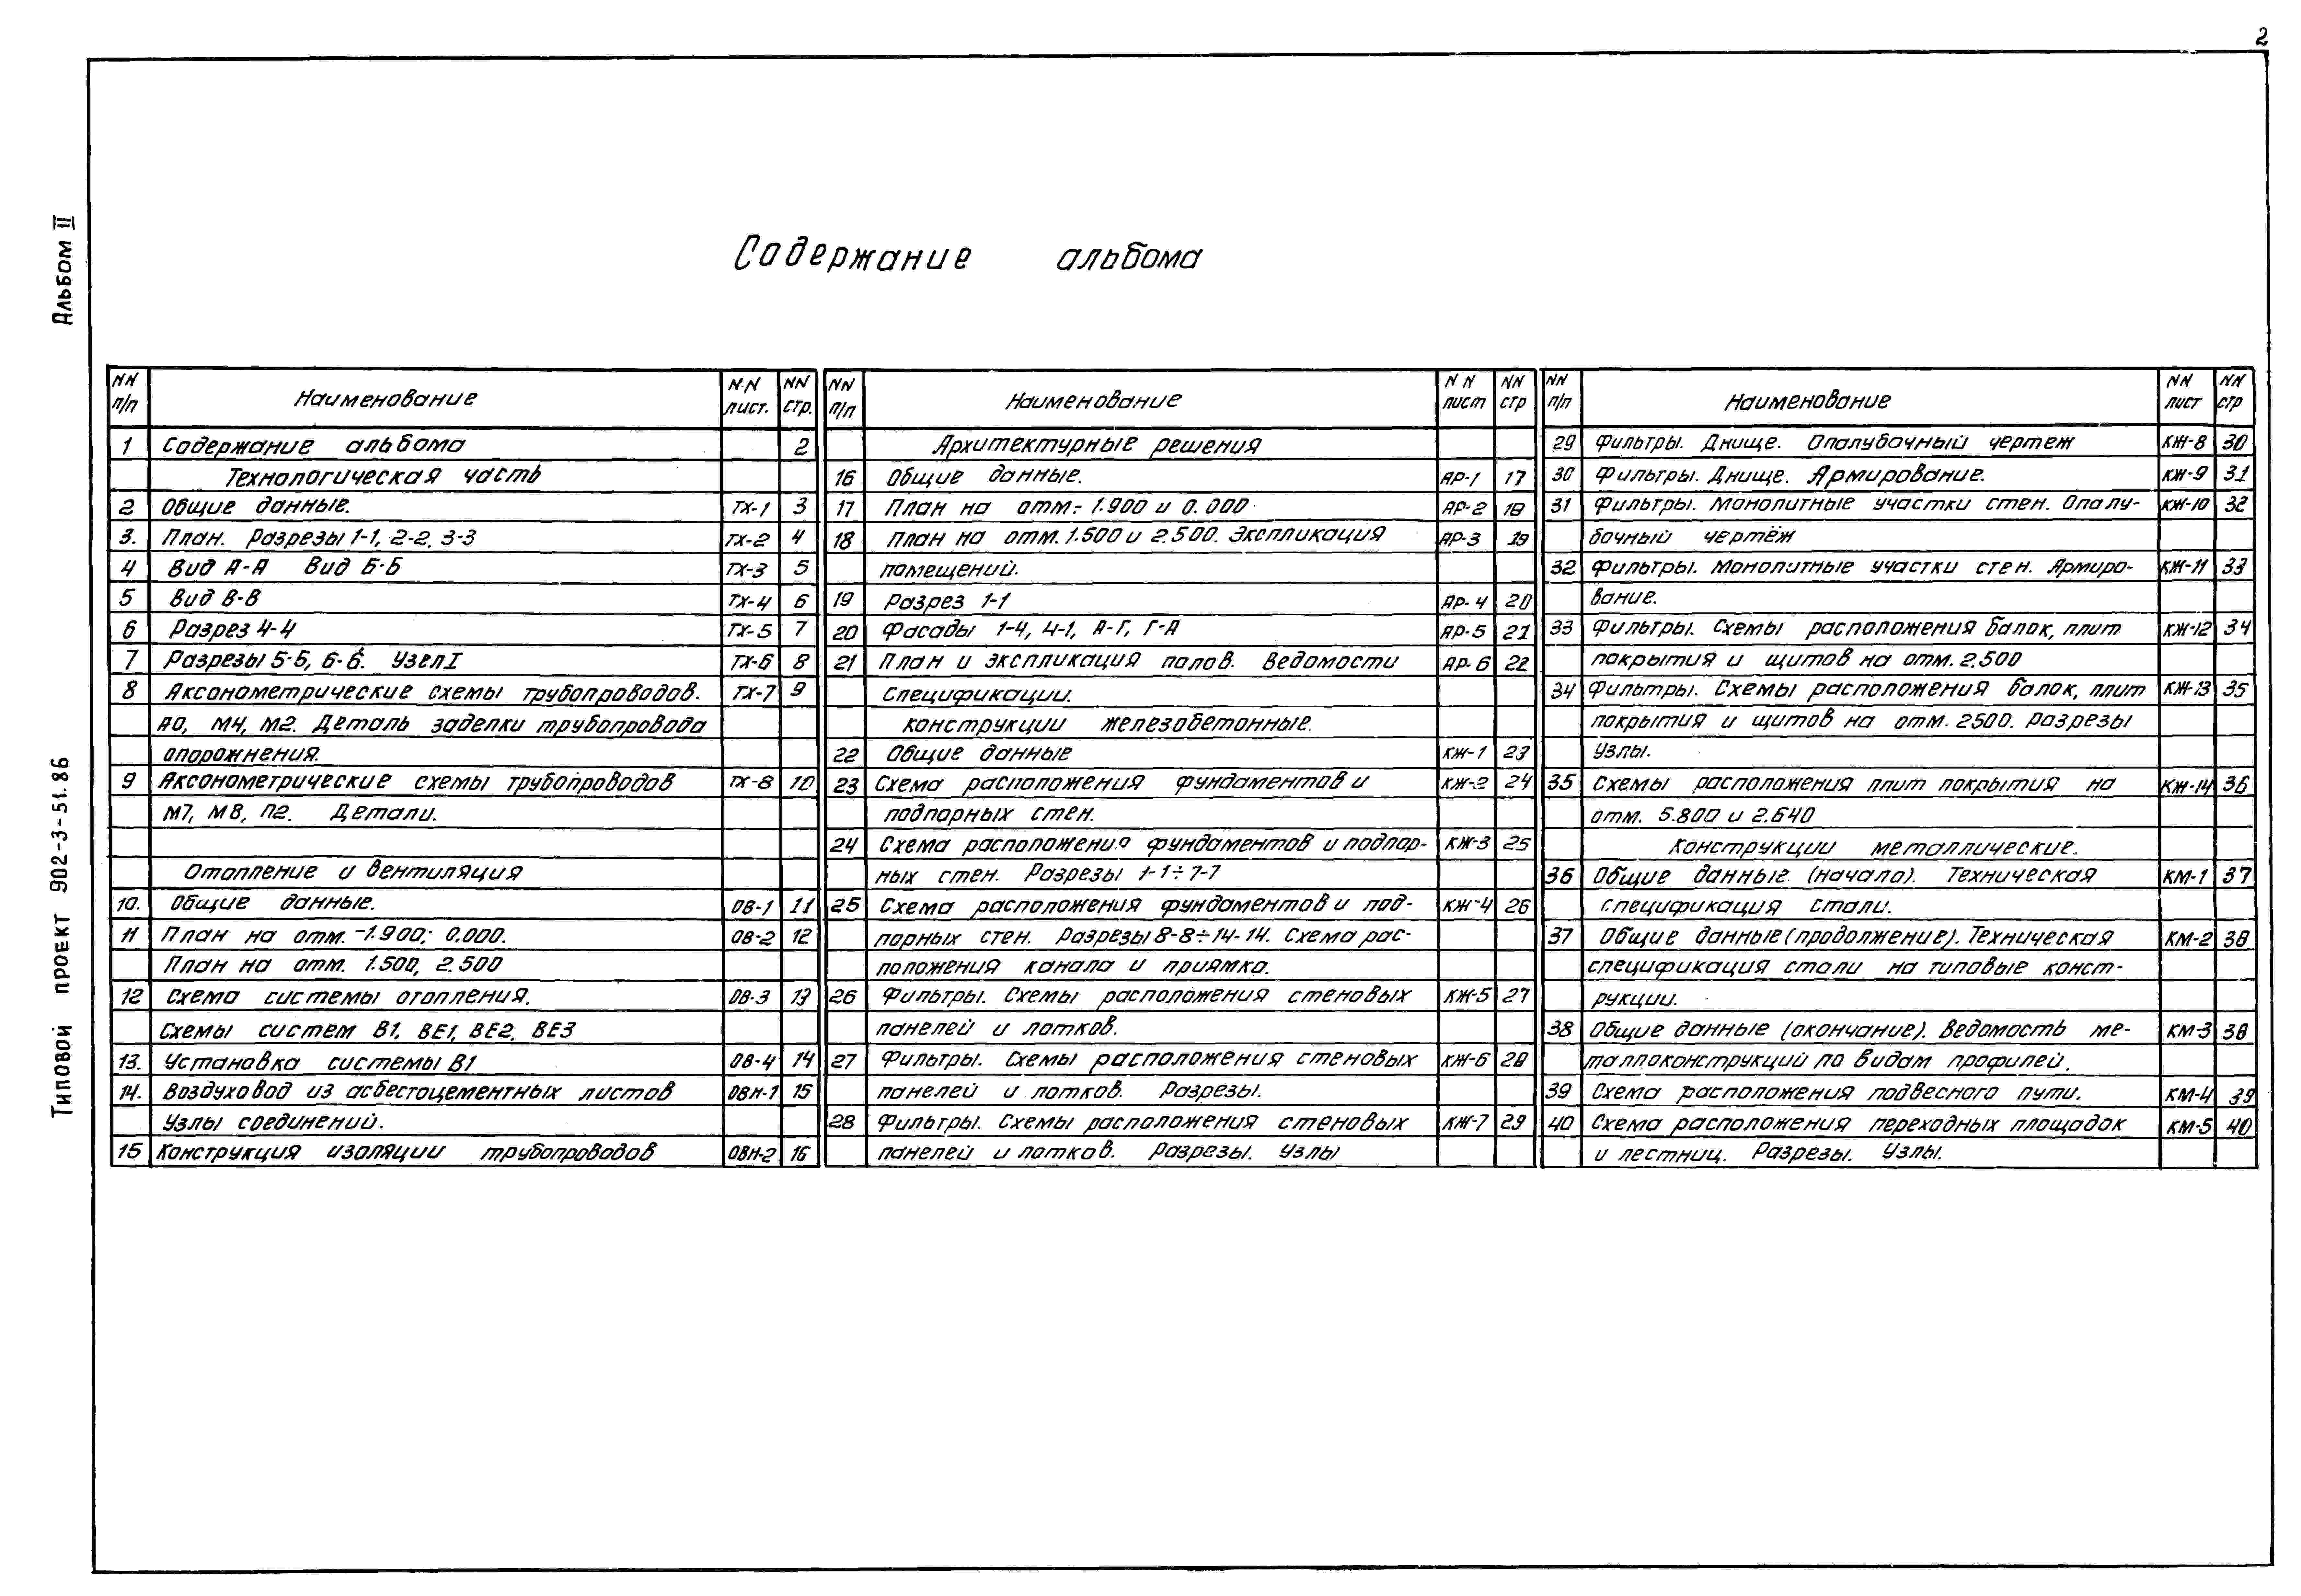 2
Альбом II
Типовой проект 902-3-51.86
Содержание альбома
NN п/п Наименование NN лист. NN стр.
1 Содержание альбома 2
Технологическая часть
2 Общие данные. ТХ-1 3
3. План. Разрезы 1-1, 2-2, 3-3 ТХ-2 4
4 Вид А-А Вид Б-Б ТХ-3 5
5 Вид В-В ТХ-4 6
6 Разрез 4-4 ТХ-5 7
7 Разрезы 5-5, 6-6. Узел I ТХ-6 8
8 Аксонометрические схемы трубопроводов. ТХ-7 9
А0, М4, М2. Деталь заделки трубопровода
опорожнения.
9 Аксонометрические схемы трубопроводов ТХ-8 10
М7, М8, П2. Детали.
Отопление и вентиляция
10. Общие данные. ОВ-1 11
11 План на отм. -1.900; 0.000. ОВ-2 12
План на отм. 1.500, 2.500
12 Схема системы отопления. ОВ-3 13
Схемы систем В1, ВЕ1, ВЕ2, ВЕ3
13. Установка системы В1 ОВ-4 14
14. Воздуховод из асбестоцементных листов ОВН-1 15
Узлы соединений.
15 Конструкция изоляции трубопроводов ОВН-2 16
NN п/п Наименование NN лист NN стр
Архитектурные решения
16 Общие данные. АР-1 17
17 План на отм.- 1.900 и 0.000 АР-2 18
18 План на отм. 1.500 и 2.500. Экспликация АР-3 19
помещений.
19 Разрез 1-1 АР-4 20
20 Фасады 1-4, 4-1, А-Г, Г-А АР-5 21
21 План и экспликация полов. Ведомости АР-6 22
Спецификации.
Конструкции железобетонные.
22 Общие данные КЖ-1 23
23 Схема расположения фундаментов и КЖ-2 24
подпорных стен.
24 Схема расположения фундаментов и подпор- КЖ-3 25
ных стен. Разрезы 1-1÷7-7
25 Схема расположения фундаментов и под- КЖ-4 26
порных стен. Разрезы 8-8÷14-14. Схема рас-
положения канала и приямка.
26 Фильтры. Схемы расположения стеновых КЖ-5 27
панелей и лотков.
27 Фильтры. Схемы расположения стеновых КЖ-6 28
панелей и лотков. Разрезы.
28 Фильтры. Схемы расположения стеновых КЖ-7 29
панелей и лотков. Разрезы. Узлы
NN п/п Наименование NN лист NN стр
29 Фильтры. Днище. Опалубочный чертеж КЖ-8 30
30 Фильтры. Днище. Армирование. КЖ-9 31
31 Фильтры. Монолитные участки стен. Опалу- КЖ-10 32
бочный чертёж
32 Фильтры. Монолитные участки стен. Армиро- КЖ-11 33
вание.
33 Фильтры. Схемы расположения балок, плит КЖ-12 34
покрытия и щитов на отм. 2.500
34 Фильтры. Схемы расположения балок, плит КЖ-13 35
покрытия и щитов на отм. 2500. Разрезы
Узлы.
35 Схемы расположения плит покрытия на КЖ-14 36
отм. 5.800 и 2.640
Конструкции металлические.
36 Общие данные (начало). Техническая КМ-1 37
спецификация стали.
37 Общие данные (продолжение). Техническая КМ-2 38
спецификация стали на типовые конст-
рукции.
38 Общие данные (окончание). Ведомость ме- КМ-3 38
таллоконструкций по видам профилей.
39 Схема расположения подвесного пути. КМ-4 39
40 Схема расположения переходных площадок КМ-5 40
и лестниц. Разрезы. Узлы.